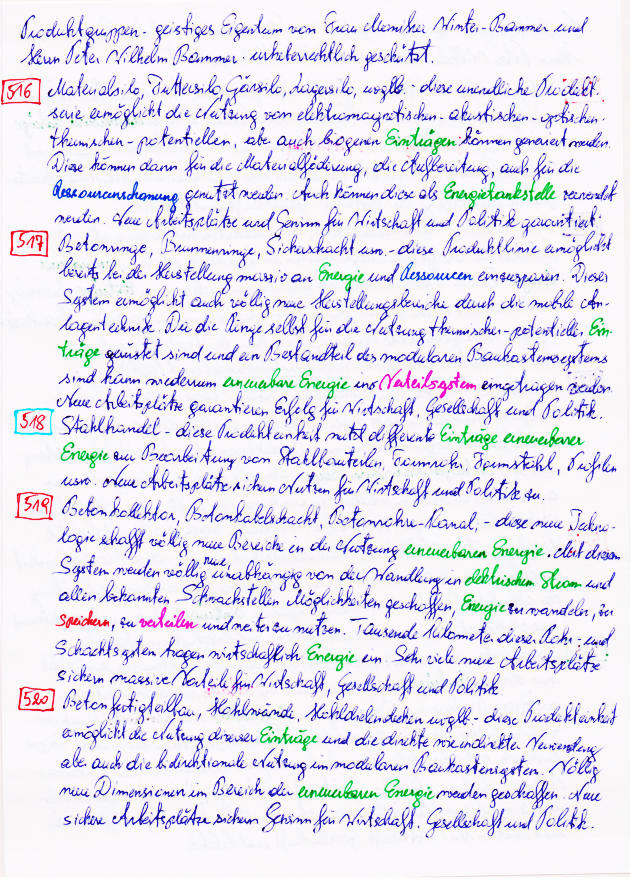 Produktgruppen - geistiges Eigentum von Frau Monika Winter-Bammer und
Herrn Peter Wilhelm Bammer - urheberrechtlich geschützt.
516 Materialsilo, Futtersilo, Gärsilo, Lagersilo, - diese unendliche Produkt-
serie ermöglicht die Nutzung von elektromagnetischen - akustischen - optischen -
thermischen - potentiellen, aber auch biogenen Einträgen können generiert werden.
Diese können dann für die Materialförderung, die Aufbereitung, auch für die
Ressourcenschonung genutzt werden. Auch können diese als Energietankstelle verwendet
werden. Neue Arbeitsplätze und Gewinn für Wirtschaft und Politik garantiert.
517 Betonringe, Brunnenringe, Sickerschacht usw. - diese Produktlinie ermöglicht
bereits bei der Herstellung massiv an Energie und Ressourcen einzusparen. Dieses
System ermöglicht auch völlig neue Herstellungsbereiche durch die mobile An-
lagentechnik. Da die Ringe selbst für die Nutzung thermischer - potentieller Ein-
träge gerüstet sind und ein Bestandteil des modularen Baukastensystems
sind kann wiederum erneuerbare Energie ins Verteilsystem eingetragen werden.
Neue Arbeitsplätze garantieren Erfolg für Wirtschaft, Gesellschaft und Politik.
518 Stahlhandel - diese Produkteinheit nutzt differente Einträge erneuerbarer
Energie zur Bearbeitung von Stahlbauteilen, Formrohr, Formstahl, Profilen
usw. Neue Arbeitsplätze sichern Nutzen für Wirtschaft und Politik zu.
519 Betonkollektor, Betonkabelschacht, Betonrohre-Kanal, - diese neue Techno-
logie schafft völlig neue Bereiche in der Nutzung erneuerbaren Energie. Mit diesem
System werden völlig neue unabhängig von der Wandlung in elektrischen Strom und
allen bekannten Schwachstellen Möglichkeiten geschaffen, Energie zu wandeln, zu
speichern, zu verteilen und weiter zu nutzen. Tausende Kilometer dieser Rohr- und
Schachtsysteme tragen wirtschaftlich Energie ein. Sehr viele neue Arbeitsplätze
sichern massive Vorteile für Wirtschaft, Gesellschaft und Politik
520 Betonfertigteilbau, Hohlwände, Hohldielendecken - diese Produkteinheit
ermöglicht die Nutzung diverser Einträge und die direkte wie indirekte Verwendung
aber auch die bidirektionale Nutzung im modularen Baukastensystem. Völlig
neue Dimensionen im Bereich der erneuerbaren Energie werden geschaffen. Neue
sichere Arbeitsplätze sichern Gewinn für Wirtschaft, Gesellschaft und Politik.